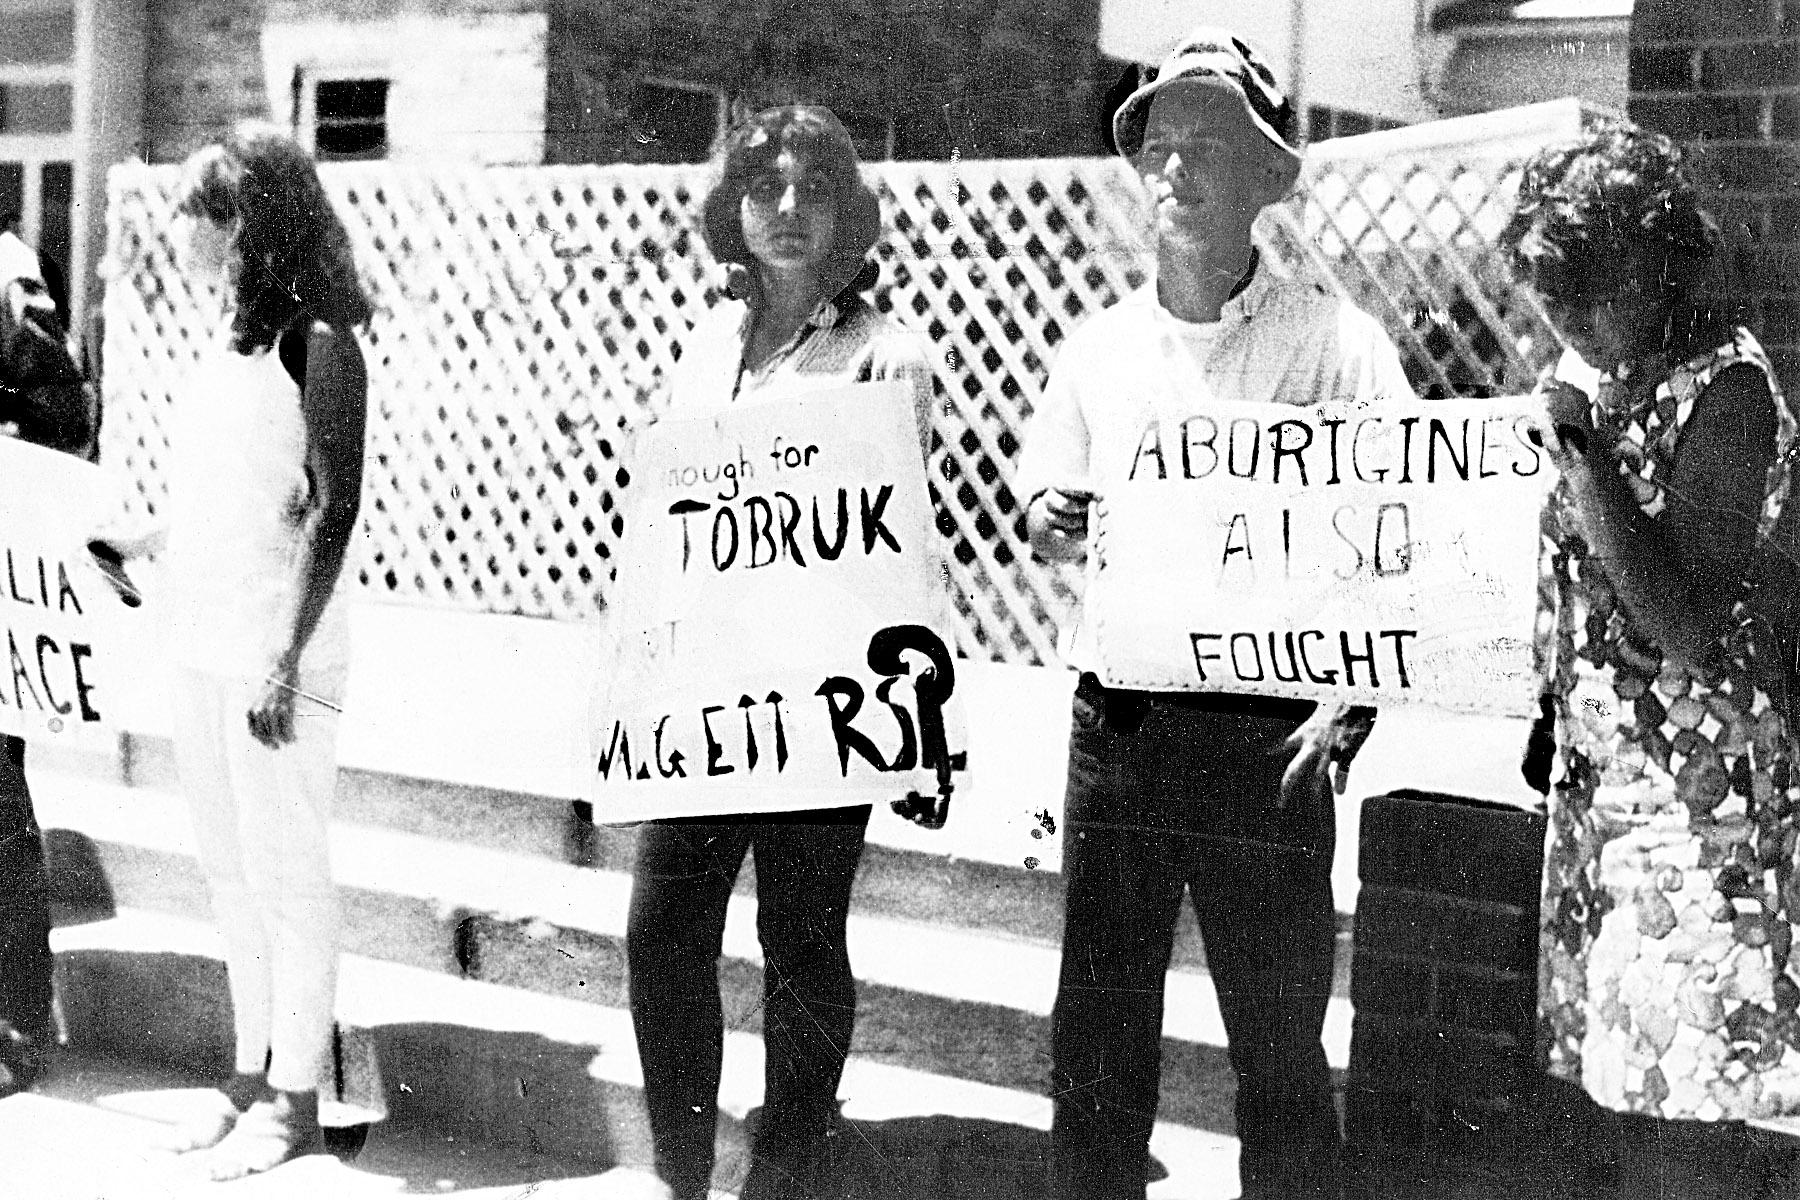 LIA
ACE
nough for
TOBRUK
WALGETT RSL
ABORIGINES
ALSO
FOUGHT